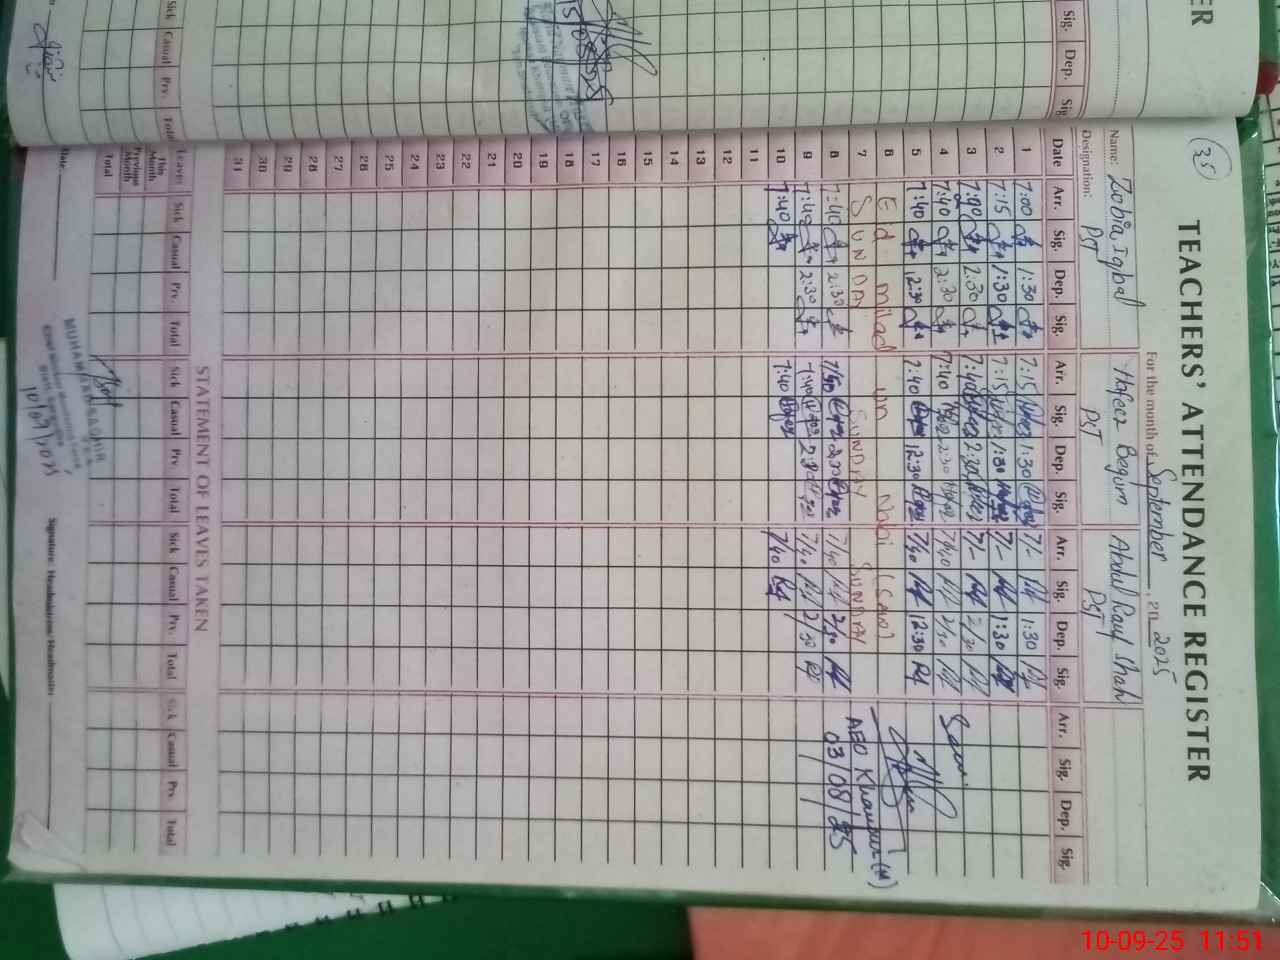 35
TEACHERS' ATTENDANCE REGISTER
For the month of September, 20 2025
Name: Zobia Iqbal Hafeez Begum Abdul Rauf Shah
Designation: PST PST PST
Date Arr. Sig. Dep. Sig. Arr. Sig. Dep. Sig. Arr. Sig. Dep. Sig. Arr. Sig. Dep. Sig.
1 7:00 1:30 7:15 1:30 7/- 1:30
2 7:15 1:30 7:15 1:30 7/- 1:30
3 2:30 7:40 2:30 7/- 2/30
4 7:40 2:30 7:40 2:30 7/40 2/30
5 7:40 12:30 7:40 12:30 7/40 12:30
6 Ed milad un Nabi
7 SUNDAY SUNDAY SUNDAY
8 7:40 2:30 7/40 2:30 7/40 2/30
9 7:40 2:30 7:40 2:30 7/40 2/30
10 7:40 7:40 7/40
11
12
13
14
15
16
17
18
19
20
21
22
23
24
25
26
27
28
29
30
31
AEO Khanpur (M)
03/08/25
STATEMENT OF LEAVES TAKEN
Leaves Sick Casual Prv. Total Sick Casual Prv. Total Sick Casual Prv. Total Sick Casual Prv. Total
This Month
Previous Month
Total
MUHAMMAD SAGHIR
10/09/2025
Date: Signature Headmistress/Headmaster
ER
Sig. Dep. Sig.
Sick Casual Prv. Total
10-09-25 11:51